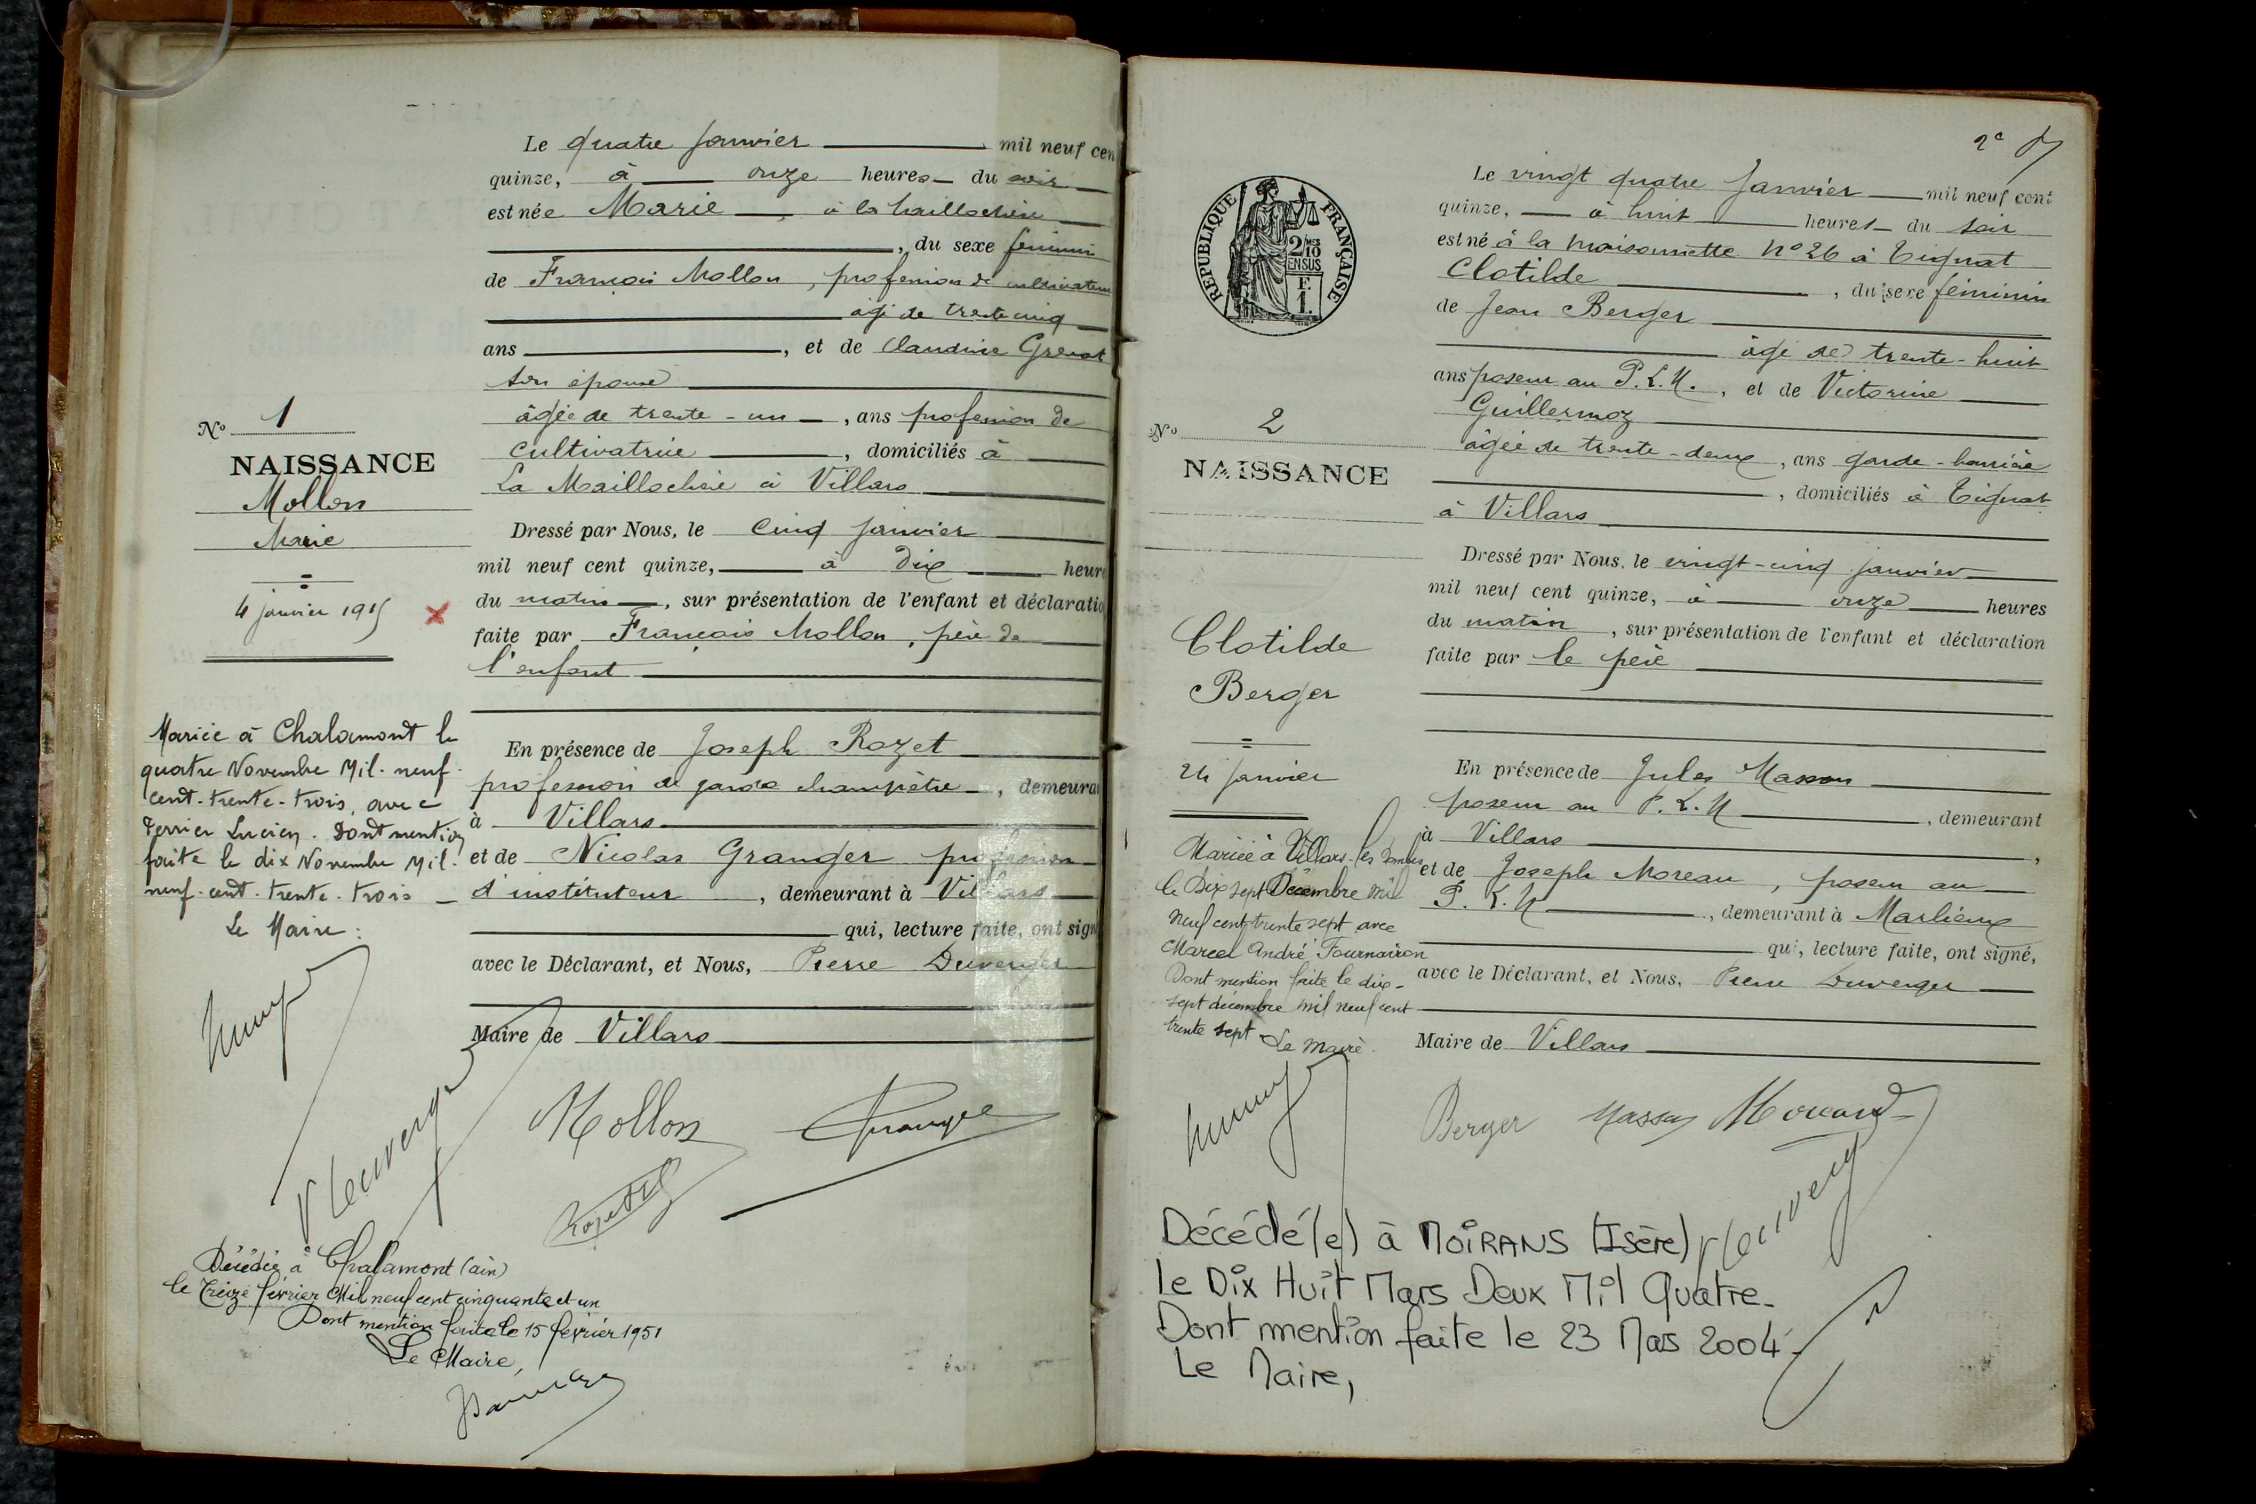 Le quatre Janvier mil neuf cen
quinze, à onze heures du soir
est née Marie, à la Maillochère
, du sexe féminin
de François Mollon, profession de cultivateur
âgé de trente cinq
ans, et de Claudine Grenot
son épouse
âgée de trente-un, ans profession de
cultivatrice, domiciliés à
La Maillochère à Villars
No 1
NAISSANCE
Mollon
Marie
4 janvier 1915
Dressé par Nous, le cinq janvier
mil neuf cent quinze, à dix heure
du matin, sur présentation de l'enfant et déclaratio
faite par François Mollon, père de
l'enfant
En présence de Joseph Rozet
profession de garde champêtre, demeura
à Villars
et de Nicolas Granger profession
d'instituteur, demeurant à Villars
qui, lecture faite, ont sign
avec le Déclarant, et Nous, Pierre Duverger
Maire de Villars
Mariée à Chalamont le
quatre Novembre Mil-neuf-
cent-trente-trois, avec
Terrier Lucien. Dont mention
faite le dix Novembre Mil-
neuf-cent-trente-trois
Le Maire:
Mollon
Granger
Duverger
Rozet
Décédée à Chalamont (ain)
le Treize février Mil neuf cent cinquante et un
Dont mention faite le 15 février 1951
Le Maire,
2e
RÉPUBLIQUE FRANÇAISE
2/10 MES
EN SUS
F.
1.
Le vingt quatre Janvier mil neuf cent
quinze, à huit heures du soir
est né à la maisonnette No 26 à Tignat
Clotilde, du sexe féminin
de Jean Berger
âgé de trente-huit
ans poseur au P.L.M., et de Victorine
Guillermoz
âgée de trente-deux, ans garde-barrière
, domiciliés à Tignat
à Villars
No 2
NAISSANCE
Clotilde
Berger
24 janvier
Dressé par Nous, le vingt-cinq janvier
mil neuf cent quinze, à onze heures
du matin, sur présentation de l'enfant et déclaration
faite par le père
En présence de Jules Masson
poseur au P.L.M, demeurant
à Villars,
et de Joseph Moreau, poseur au
P.L.M, demeurant à Marlieux
qui, lecture faite, ont signé,
avec le Déclarant, et Nous, Pierre Duverger
Maire de Villars
Mariée à Villars-les Dombes
le Dix sept Décembre mil
neuf cent trente sept avec
Marcel André Fournairon
Dont mention faite le dix-
sept décembre mil neuf cent
trente sept Le Maire.
Berger Masson
Duverger
Décédé(e) à MOIRANS (Isère)
le Dix Huit Mars Deux Mil Quatre.
Dont mention faite le 23 Mars 2004.
Le Maire,